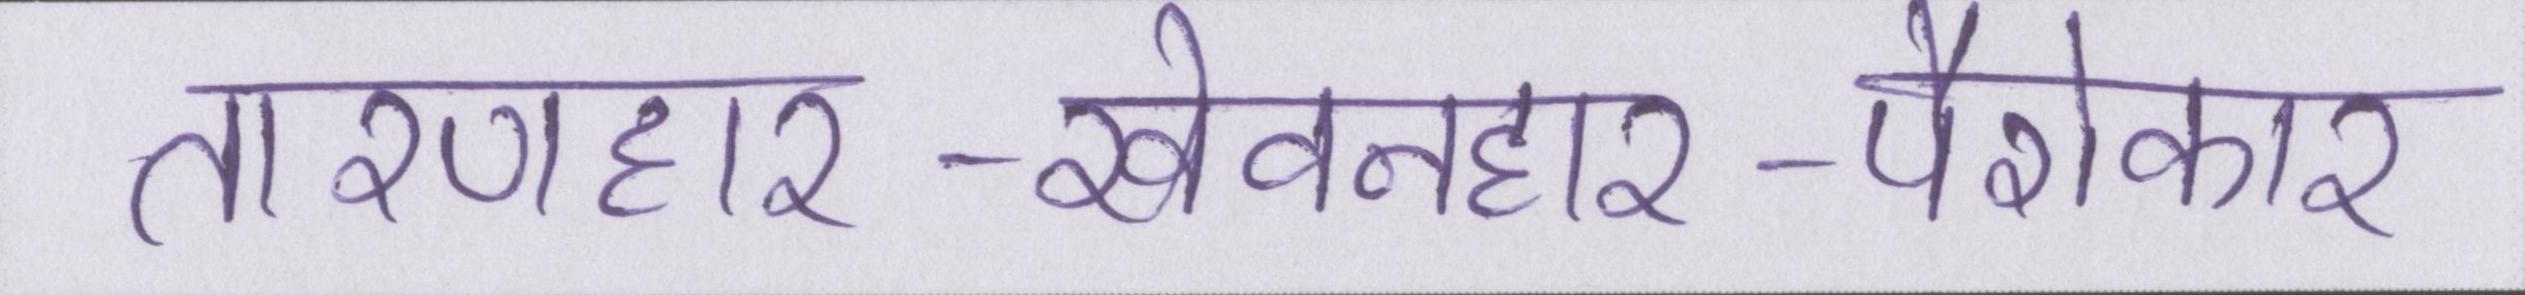 तारणहार -खेवनहार -पैरोकार